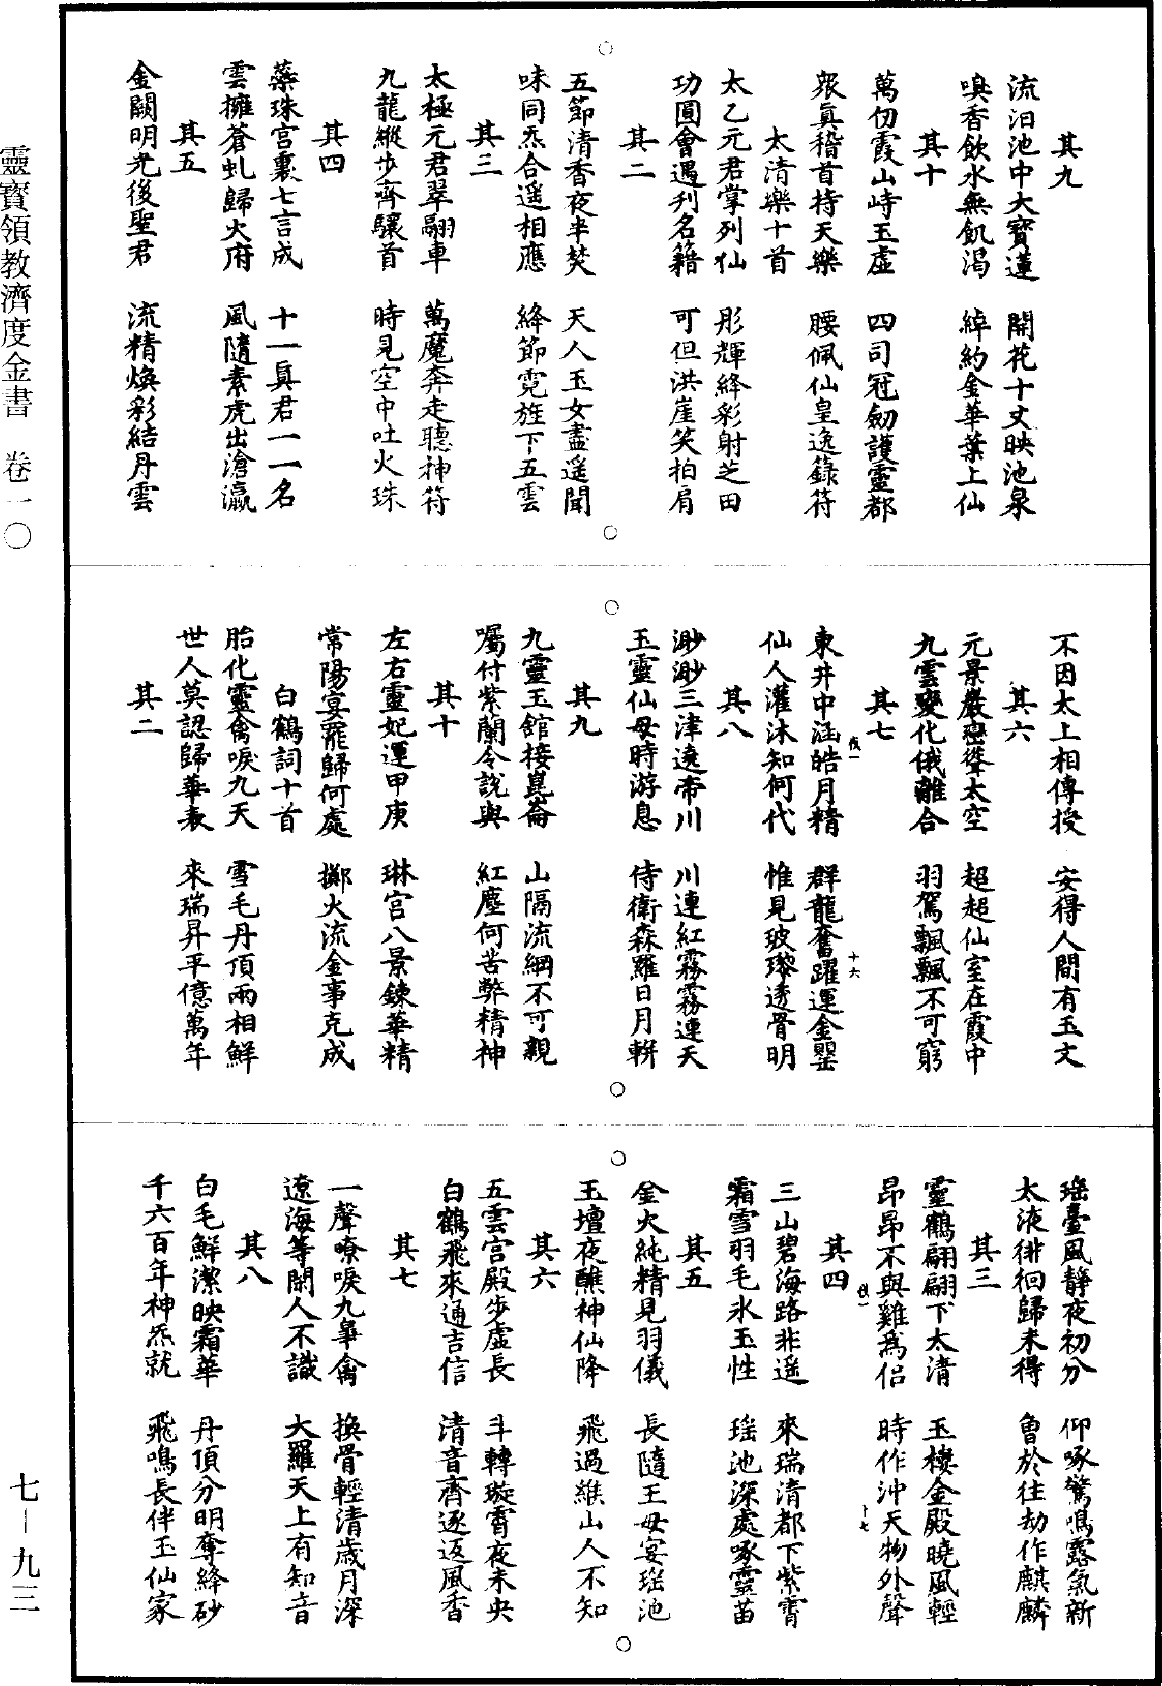 其九
流汨池中大寶蓮　開花十丈映池泉
嗅香飲水無飢渴　綽約金華葉上仙
其十
萬仞霞山峙玉虛　四司冠劒護靈都
衆眞稽首持天樂　腰佩仙皇逸籙符
太清樂十首
太乙元君掌列仙　彤輝絳彩射芝田
功圓會遇刋名籍　可但洪崖笑拍肩
其二
五節清香夜半焚　天人玉女盡遥聞
味同炁合遥相應　絳節霓旌下五雲
其三
太極元君翠翮車　萬魔奔走聽神符
九龍縱步齊驤首　時見空中吐火珠
其四
蘂珠宮裏七言成　十一眞君一一名
雲擁蒼虬歸火府　風隨素虎出滄瀛
其五
金闕明光後聖君　流精煥彩結丹雲
不因太上相傳授　安得人間有玉文
其六
元景巖巒聳太空　超超仙室在霞中
九雲變化俄離合　羽駕飄飄不可窮
其七
東井中涵皓月精　群龍奮躍運金罌
仙人灌沐知何代　惟見玻瓈透骨明
其八
渺渺三津遶帝川　川連紅霧霧連天
玉靈仙母時游息　侍衛森羅日月軿
其九
九靈玉館接崑崙　山隔流綱不可親
囑付紫蘭令說與　紅塵何苦弊精神
其十
左右靈妃運甲庚　琳宮八景鍊華精
常陽宴罷歸何處　擲火流金事克成
白鶴詞十首
胎化靈禽唳九天　雪毛丹頂兩相鮮
世人莫認歸華表　來瑞昇平億萬年
其二
瑶臺風靜夜初分　仰啄驚鳴露氣新
太液徘徊歸未得　曾於往劫作麒麟
其三
靈鶴翩翩下太清　玉樓金殿曉風輕
昂昂不與雞爲侣　時作沖天物外聲
其四
三山碧海路非遥　來瑞清都下紫霄
霜雪羽毛氷玉性　瑶池深處啄靈苗
其五
金火純精見羽儀　長隨王母宴瑶池
玉壇夜醮神仙降　飛過緱山人不知
其六
五雲宮殿步虛長　斗轉璇霄夜未央
白鶴飛來通吉信　清音齊逐返風香
其七
一聲嘹唳九臯禽　換骨輕清歲月深
遼海等閑人不識　大羅天上有知音
其八
白毛鮮潔映霜華　丹頂分明奪絳砂
千六百年神炁就　飛鳴長伴玉仙家
十六
十七
靈寳領教濟度金書　卷一〇
七－九三